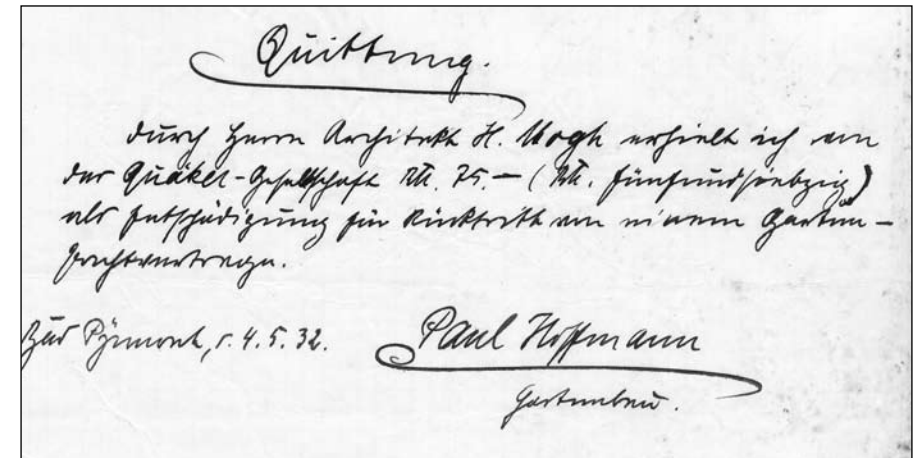 Quittung.
Durch Herrn Architekt H. Mogk erhielt ich von
der Quäker-Gesellschaft RM. 75.— (RM. fünfundsiebzig)
als Entschädigung für Rücktritt von einem Garten-
pachtvertrage.
Bad Pyrmont, d. 4.5.32.
Paul Hoffmann
Gartenbau.